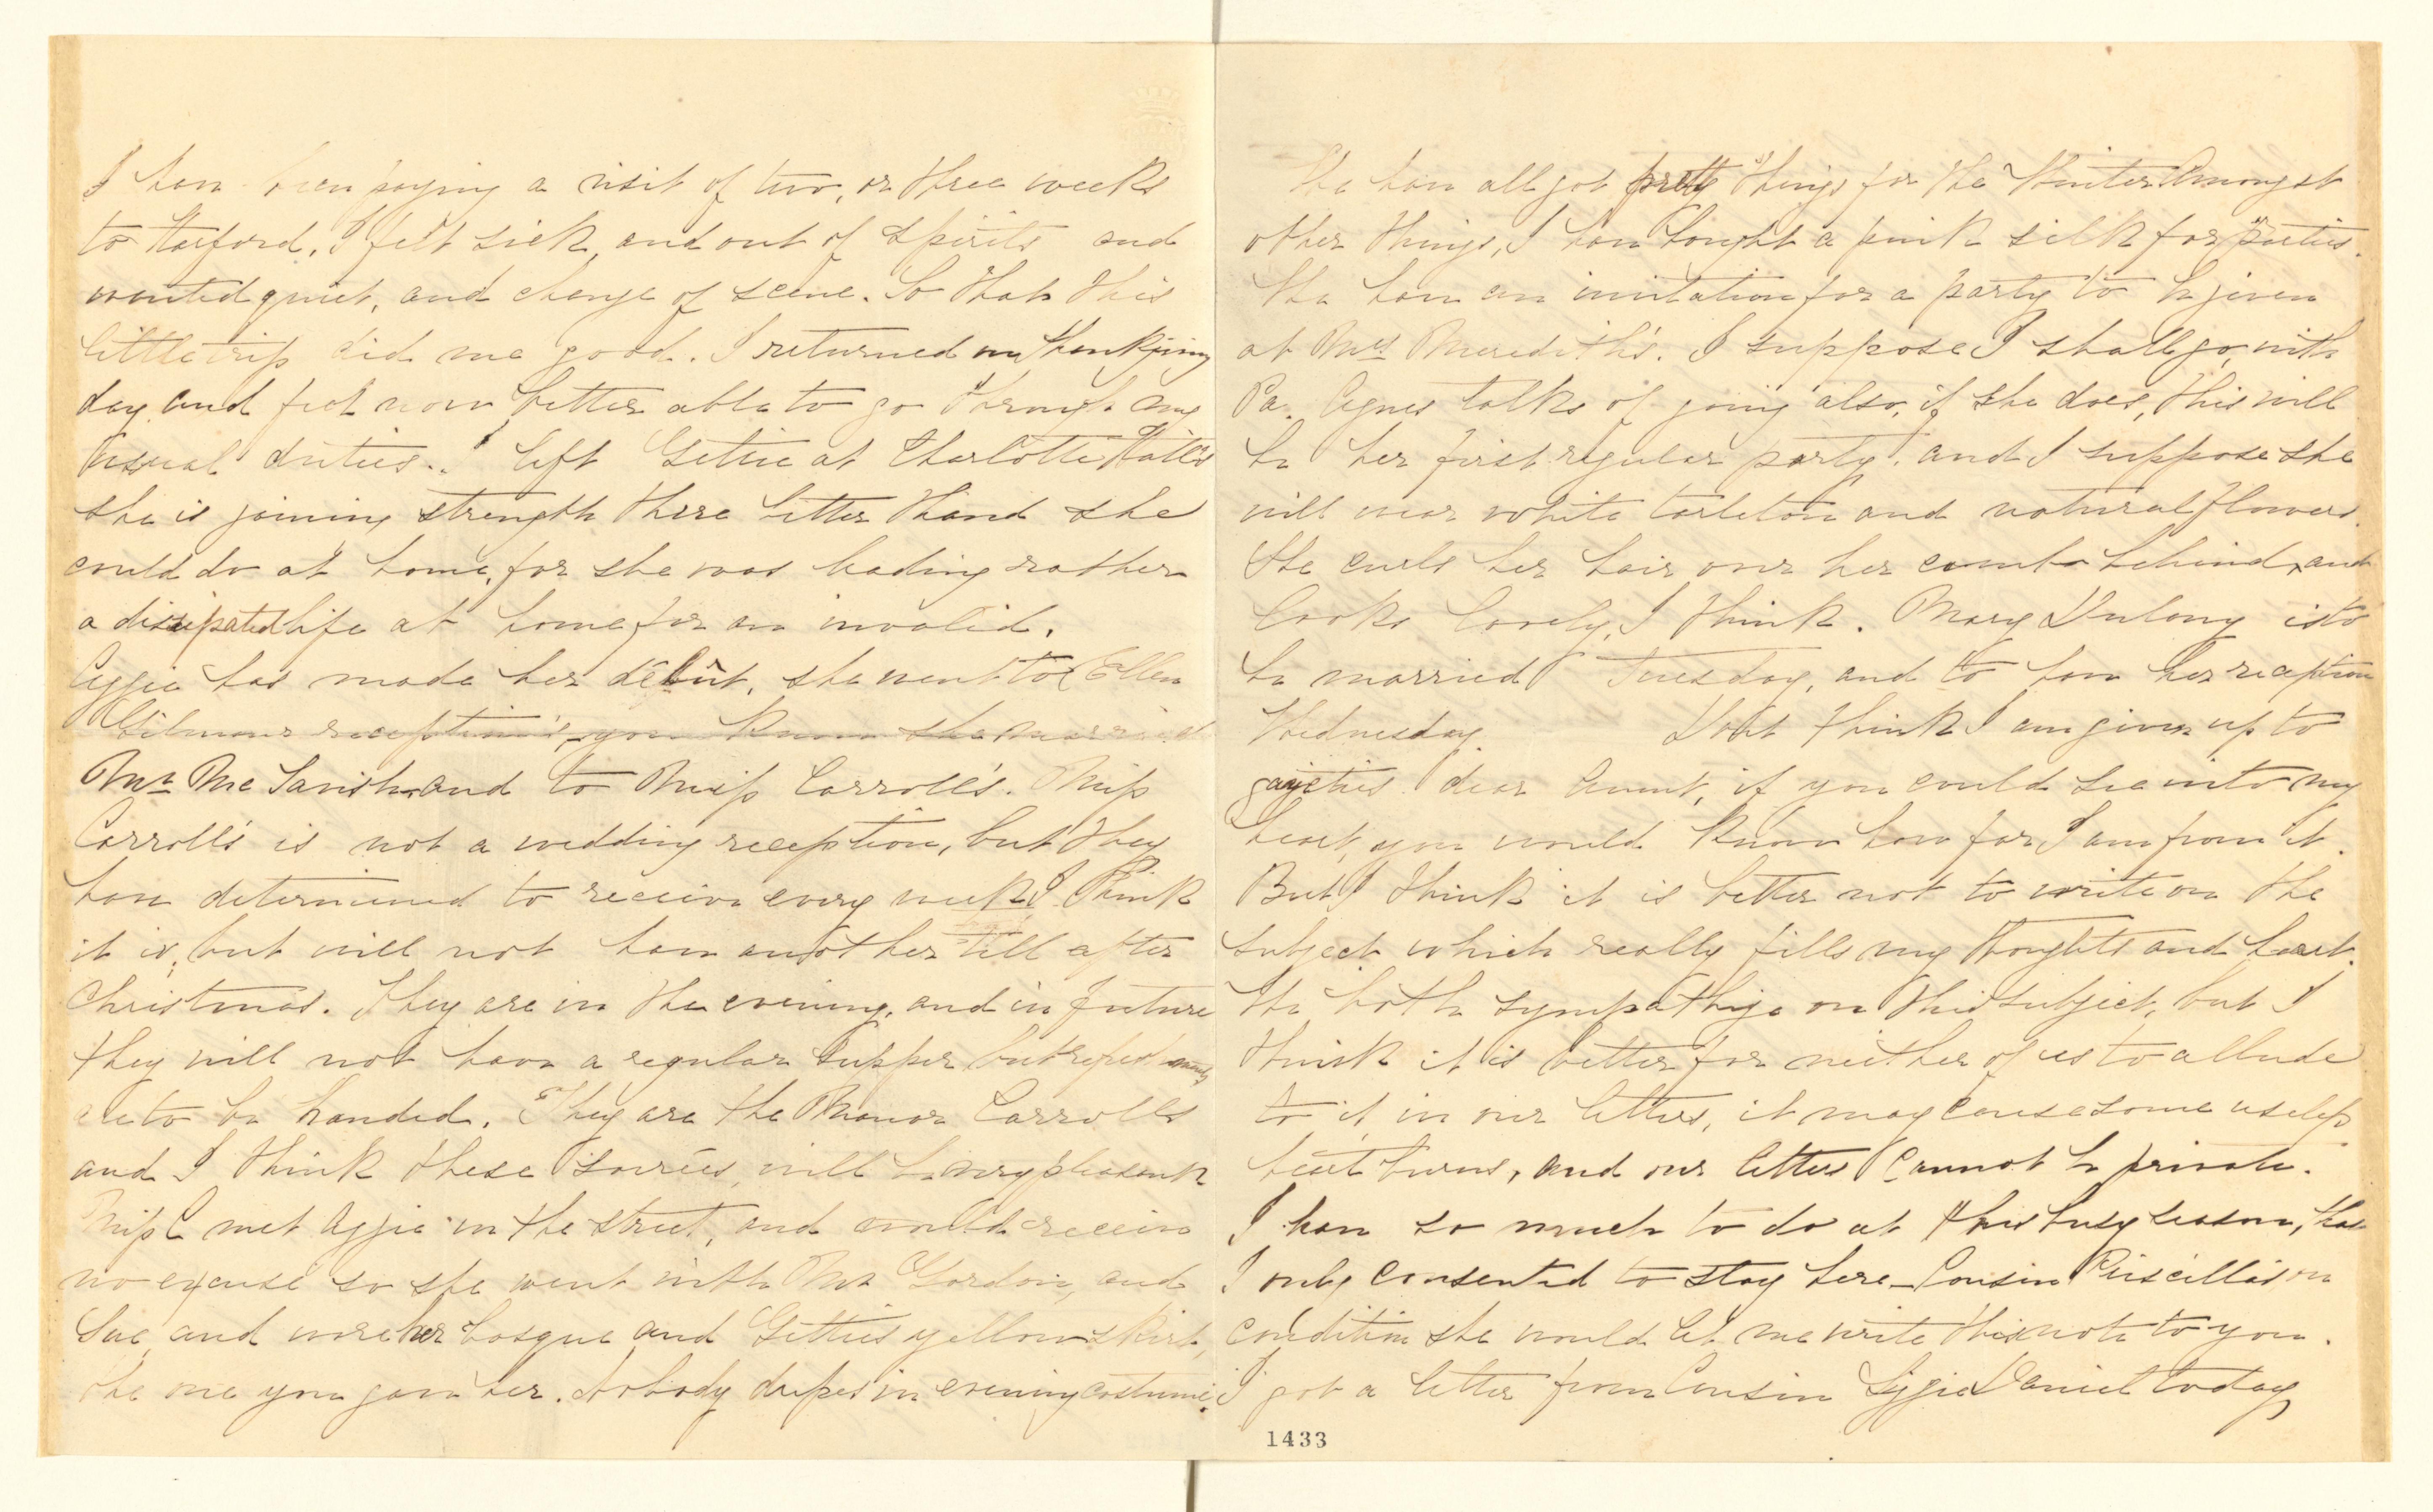 I have been paying a visit of two, or three weeks
to Harford. I felt sick, and out of spirits and
wanted quiet, and change of scene. So that this
little trip did me good. I returned on Thanksgiving
day and feel now better able to go through my
usual duties. I left Gettie at Charlotte Hall's
she is gaining strength there better thand she
could do at home, for she was leading rather
a dissipated life at home for an invalid.
Aggie has made her début, she went to Ellen
Gilmour's reception's, you know she married
Mr. McTavish and to Miss Carroll's. Miss
Carroll's is not a wedding reception, but they
have determined to receive every week, I think
it is, but will not have another till after
Christmas. They are in the evening, and in future
they will not have a regular supper but refreshments
are to be handed. They are the Manor Carrolls
and I think these soirées, will be very pleasant
Miss C met Aggie in the street, and would receive
no excuse so she went with Mr. Gordon, and
Sue, and wore her basque and Gettie's yellow skirt,
the one you gave her. Nobody dresses in evening costume.
We have all got pretty things for the Winter Amongst
other things, I have bought a pink silk for parties.
We have an invitation for a party to be given
at Mrs Meredith's. I suppose I shall go, with
Pa. Agnes talks of going also, if she does, this will
be her first regular party. and I suppose she
will wear white tarleton and natural flowers.
She curls her hair over her comb behind, and
looks lovely, I think. Mary Dulany is to
be married Tuesday, and to have her reception
Wednesday. Don't think I am given up to
gayeties dear Aunt, if you could see into my
heart, you would know how far I am from it.
But I think it is better not to write on the
subject which really fills my thoughts and heart.
We both sympathize on this subject, but I
think it is better for neither of us to allude
to it in our letters, it may cause some useless
heart burns, and our letters cannot be private.
I have so much to do at this busy season, that
I only consented to stay here - Cousin Priscilla's on
condition she would let me write this note to you.
I got a letter from Cousin Lizzie Daniel today
1433